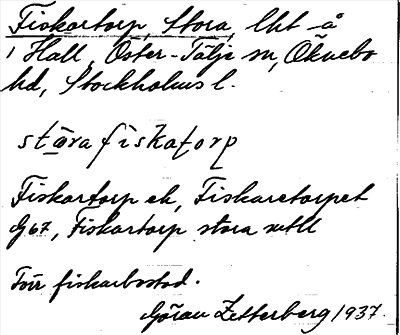 Fiskartorp, Stora, lht å
i Hall, Öster-Tälje sn, Öknebo
hd, Stockholms l.
stōra fiskatorp
Fiskartorp ek, Fiskaretorpet
g 67, Fiskartorp stora
Förr fiskarbostad.
Göran Zetterberg 1937.